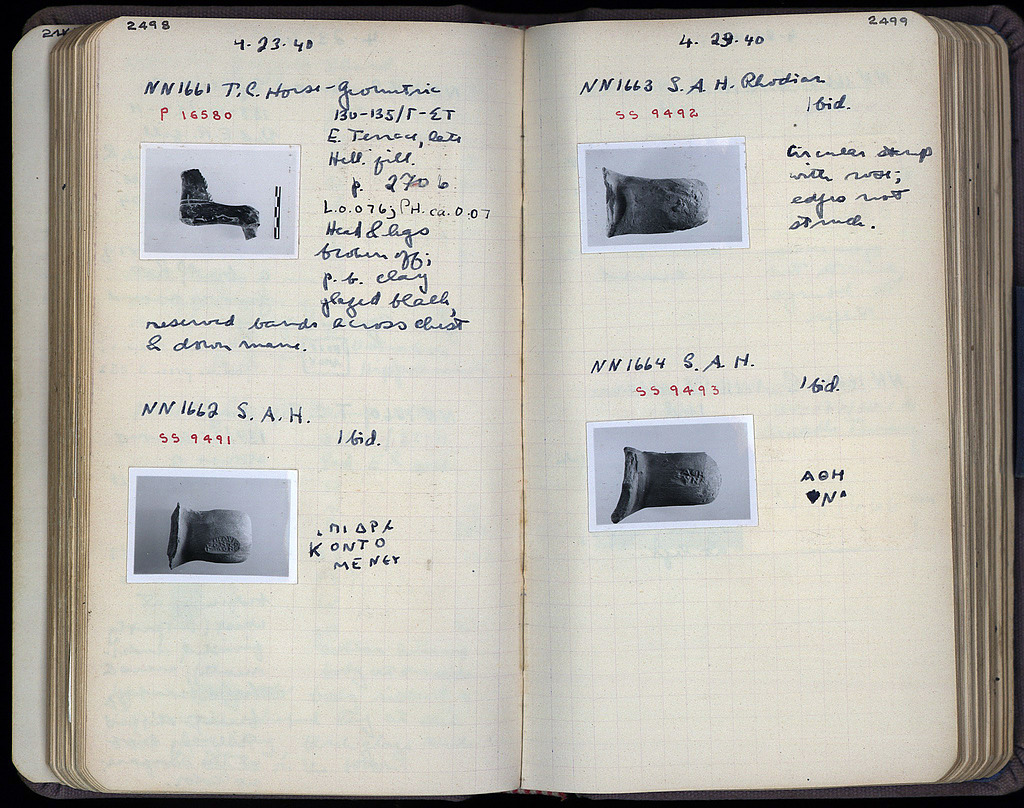 2498
4-23-40
NN1661 T.C. Horse-Geometric
P 16580
130-135/Γ-ΣΤ
E. Terrace, late
Hell. fill.
p. 2706
L.0.076; P.H. ca. 0.07
Head & legs
broken off;
p. b. clay
glazed black,
reserved bands across chest
& down mane.
NN1662 S.A.H.
SS 9491
Ibid.
ΠΙ ΔΡΑ
ΚΟΝΤΟ
ΜΕΝΕΥ
2499
4-23-40
NN1663 S.A.H. Rhodian
SS 9492
Ibid.
Circular stamp
with rose;
edges not
struck.
NN1664 S.A.H.
SS 9493
Ibid.
ΑΘΗ
ΝΑ